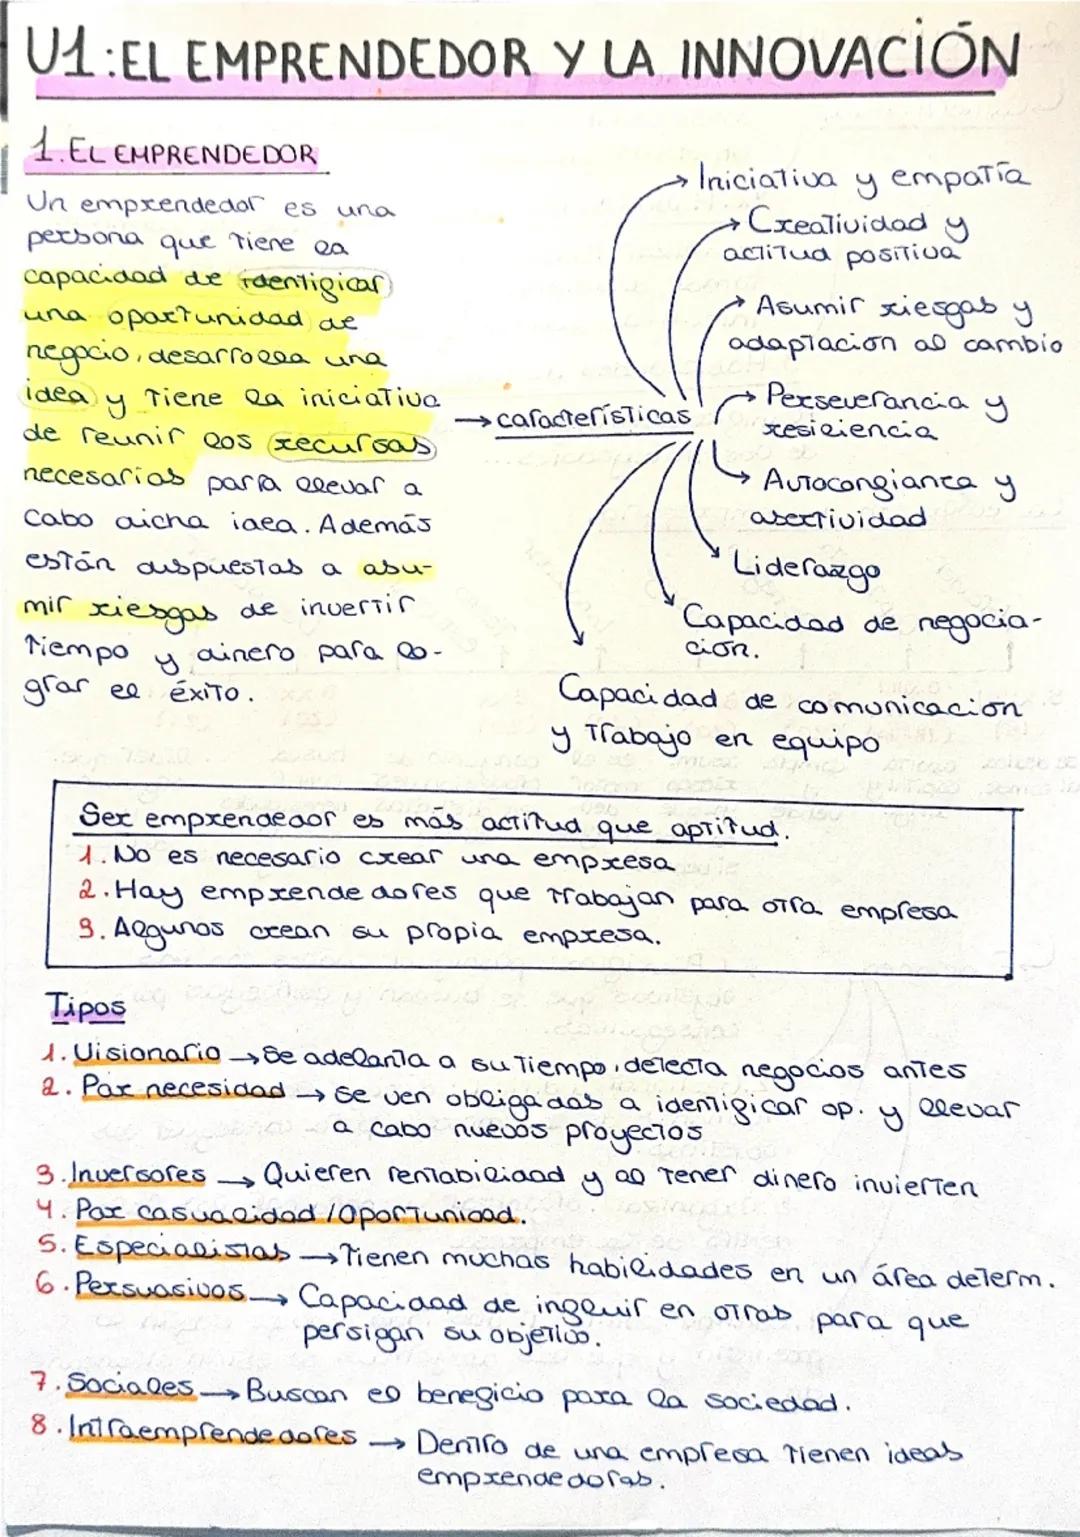 U1: EL EMPRENDEDOR Y LA INNOVACIÓN
1. EL EMPRENDEDOR
Un emprendedor es una
persona que tiene la
capacidad de identificar
una oportunidad de
negocio, desarrolla una
idea y tiene la iniciativa
de reunir los recursos
necesarios para llevar a
cabo dicha idea. Además
están dispuestas a asu-
mir riesgos de invertir
tiempo y dinero para lo-
grar el éxito.
→ características
→ Iniciativa y empatía
→ Creatividad y
actitud positiva
→ Asumir riesgos y
adaptación al cambio
→ Perseverancia y
resiliencia
→ Autoconfianza y
asertividad
Liderazgo
Capacidad de negocia-
ción.
Capacidad de comunicación
y trabajo en equipo
Ser emprendedor es más actitud que aptitud.
1. No es necesario crear una empresa
2. Hay emprendedores que trabajan para otra empresa
3. Algunos crean su propia empresa.
Tipos
1. Visionario → Se adelanta a su tiempo, detecta negocios antes
2. Por necesidad → Se ven obligados a identificar op. y llevar
a cabo nuevos proyectos
3. Inversores → Quieren rentabilidad y al tener dinero invierten
4. Por casualidad / Oportunidad.
5. Especialistas → Tienen muchas habilidades en un área determ.
6. Persuasivos → Capacidad de influir en otros para que
persigan su objetivo.
7. Sociales → Buscan el beneficio para la sociedad.
8. Intraemprendedores → Dentro de una empresa tienen ideas
emprendedoras.